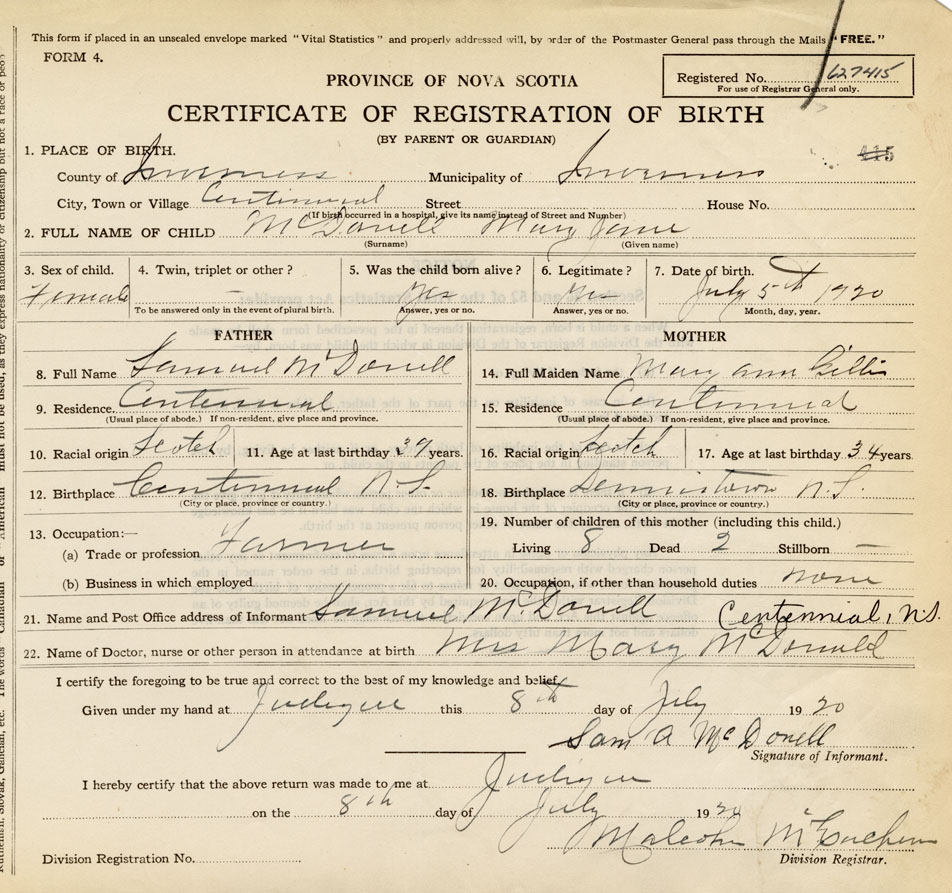 This form if placed in an unsealed envelope marked "Vital Statistics" and properly addressed will, by order of the Postmaster General pass through the Mails "FREE."
FORM 4.
Registered No. 627415
For use of Registrar General only.
PROVINCE OF NOVA SCOTIA
CERTIFICATE OF REGISTRATION OF BIRTH
(BY PARENT OR GUARDIAN)
415
1. PLACE OF BIRTH.
County of Inverness Municipality of Inverness
City, Town or Village Centennial Street House No.
(If birth occurred in a hospital, give its name instead of Street and Number)
2. FULL NAME OF CHILD McDonell Mary Jane
(Surname) (Given name)
3. Sex of child. 4. Twin, triplet or other? 5. Was the child born alive? 6. Legitimate? 7. Date of birth.
Female — Yes Yes July 5th 1920
To be answered only in the event of plural birth. Answer, yes or no. Answer, yes or no. Month, day, year.
FATHER MOTHER
8. Full Name Samuel McDonell 14. Full Maiden Name Mary Ann Gillis
9. Residence Centennial 15. Residence Centennial
(Usual place of abode.) If non-resident, give place and province. (Usual place of abode.) If non-resident, give place and province.
10. Racial origin Scotch 11. Age at last birthday 39 years. 16. Racial origin Scotch 17. Age at last birthday 34 years.
12. Birthplace Centennial N.S. 18. Birthplace N.S.
(City or place, province or country.) (City or place, province or country.)
13. Occupation:— 19. Number of children of this mother (including this child.)
(a) Trade or profession Farmer Living 8 Dead 2 Stillborn —
(b) Business in which employed 20. Occupation, if other than household duties none
21. Name and Post Office address of Informant Samuel McDonell Centennial, N.S.
22. Name of Doctor, nurse or other person in attendance at birth Mrs Mary McDonald
I certify the foregoing to be true and correct to the best of my knowledge and belief.
Given under my hand at Judique this 8th day of July 1920
Sam A McDonell
Signature of Informant.
I hereby certify that the above return was made to me at Judique
on the 8th day of July 1920
Malcolm McEachern
Division Registration No. Division Registrar.